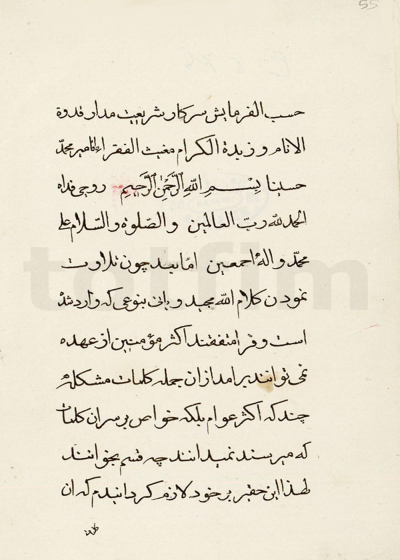 حسب الفرمایش سرکار شریعت مدار قدوة
الانام و زبدة الکرام مغیث الفقرا میر محمد
حسینا بسم الله الرحمن الرحیم روحی فداه
الحمد لله رب العالمین والصلوة والسلام علی
محمد واله اجمعین اما بعد چون تلاوت
نمودن کلام الله مجید و بانی بنوعی که وارد شده
است و قرا متفقند اکثر مؤمنین از عهده
نمی توانند برامد از ان جمله کلمات مشکله
چند که اکثر عوام بلکه خواص بر سر ان کلمات
که میرسند نمیدانند چه قسم بخوانند
لهذا این حقیر بر خود لازم گردانیدم که ان
55
totfim